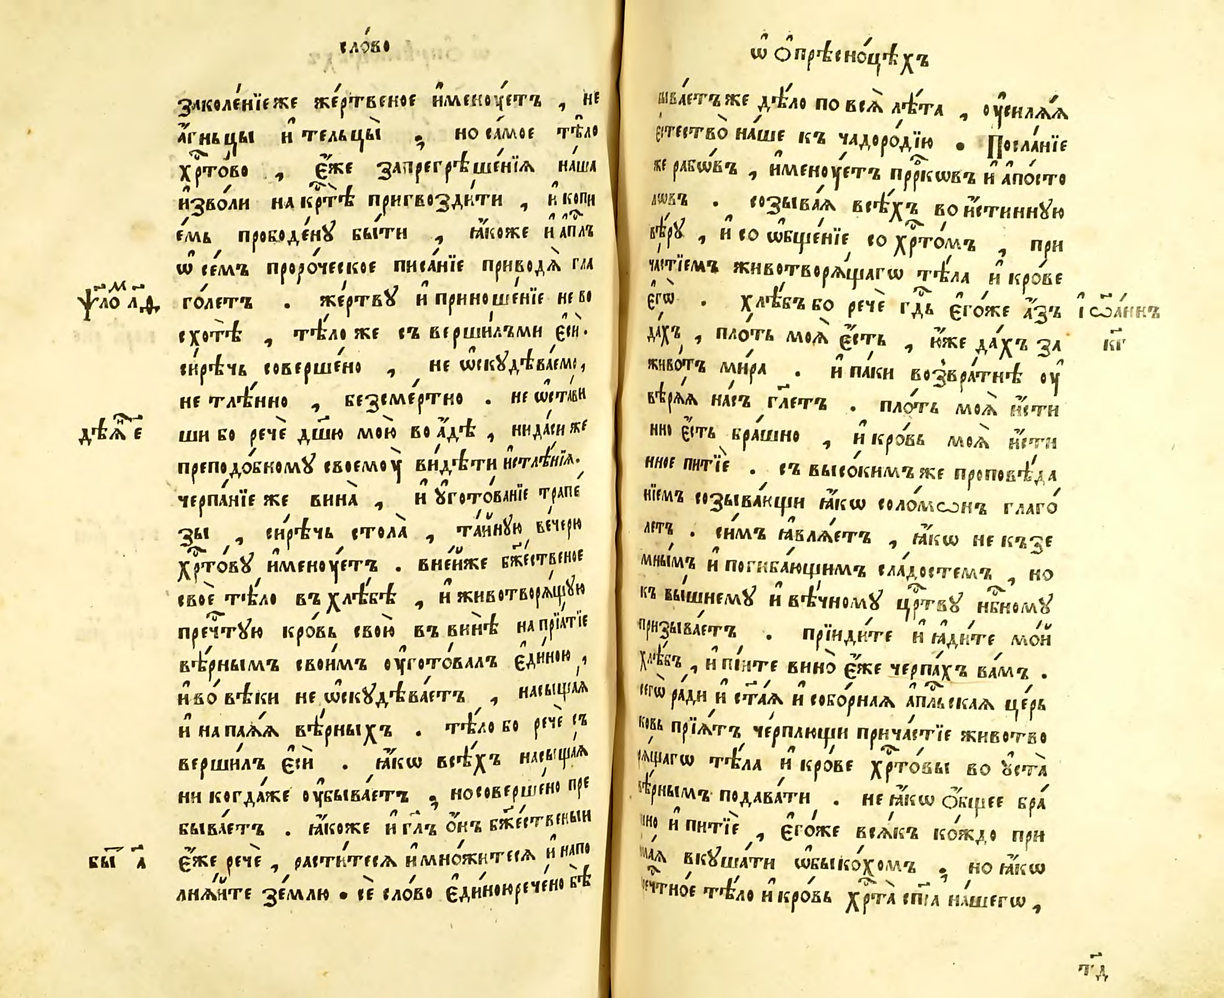 сло́во
заколе́нїе же же́ртвеное и҆менꙋ́етъ , не
а҆́гньцы и҆ тельцы̀ , но са́мое тѣ́ло
хрⷭ҇то́во , є҆́же запрегрѣше́нїѧ на́ша
и҆зво́ли на крⷭ҇тѣ̀ пригвозди́ти , и҆ копи
е́мь прободе́нꙋ бы́ти , ꙗ҆́коже и҆ а҆пⷭ҇лъ
ѡ҆ се́мъ проро́ческое писа́нїе приводѧ̀ гла
ѱало л҃ѳ м҃
го́летъ . же́ртвꙋ и҆ приноше́нїе не во
схотѣ̀ , тѣ́ло же съвершилъми є҆сѝ .
си́рѣчь соверше́но , не ѡ҆скꙋдѣва́емо ,
не тлѣ́нно , безсме́ртно . не ѡ҆ста́ви
дѣѧ҃н є
ши бо речѐ дш҃ю мою̀ во а҆́дѣ , ни даси же
преподо́бномꙋ своемоу̀ ви́дѣти и҆стлѣ́нїѧ .
черпа́нїе же вина̀ , и҆ ᲂу҆гото́ванїе трапе́
зы , си́рѣчь стола̀ , та́йнꙋю ве́черю
хрⷭ҇то́вꙋ и҆менꙋ́етъ . в не́йже бжⷭ҇твеное
своѐ тѣ́ло въ хлѣ́бѣ , и҆ животворѧ́щꙋю
пречⷭ҇тꙋю кро́вь свою̀ въ винѣ̀ на прїѧ́тїе
вѣ́рнымъ свои҆́мъ ᲂу҆гото́валъ є҆ди́ною ,
и҆ во́ вѣки не ѡ҆скꙋдѣва́етъ , насыща́ѧ
и҆ напаѧ́ѧ вѣ́рныхъ . тѣ́ло бо речѐ съ
верши́лъ є҆сѝ . ꙗ҆́кѡ всѣ́хъ насыща́ѧ
ни когда́же ᲂу҆быва́етъ , но соверше́но пре
быва́етъ . ꙗ҆́коже и҆ гл҃ъ ѻ҆́нъ бжⷭ҇твеныи
бы҃ї а҃
є҆́же речѐ , расти́тесѧ и҆ мно́житесѧ и҆ напо
лнѧ́йте зе́млю . сѐ сло́во є҆ди́ною рече́но бѣ̀
ѡ҆ ѻ҆прѣсно́цѣхъ
ыва́етъ же дѣ́ло по всѧ̀ лѣ́та , ᲂу҆силѧ́ѧ
є҆стество̀ на́ше къ чадоро́дїю . Посла́нїе
же рабѡ́въ , и҆менꙋ́етъ прⷪ҇ркѡвъ и҆ а҆по́сто
лѡвъ . созыва́ѧ всѣ́хъ во и҆́стиннꙋю
вѣ́рꙋ , и҆ со ѡ҆бще́нїе со хрⷭ҇то́мъ , при
ча́стїемъ животворѧ́щагѡ тѣ́ла и҆ кро́ве
є҆гѡ̀ . хлѣ́бъ бо речѐ гдⷭ҇ь є҆го́же а҆́зъ
і҆ѡа́ннъ
к҃г
да́хъ , пло́ть моѧ̀ є҆́сть , ю҆́же да́хъ за
живо́тъ ми́ра . и҆ па́ки возвра́тнѣ ᲂу҆
вѣрѧ́ѧ на́съ гл҃етъ . пло́ть моѧ̀ и҆́сти
нно є҆́сть бра́шно , и҆ кро́вь моѧ̀ и҆́сти
нное питїѐ . съ высо́кимъ же проповѣ́да
нїемъ созыва́ющи ꙗ҆́кѡ соломѡ́нъ глаго́
летъ . си́мъ ꙗ҆влѧ́етъ , ꙗ҆́кѡ не къ зе
мны́мъ и҆ погиба́ющимъ сла́достемъ , но
къ вы́шнемꙋ и҆ вѣ́чномꙋ црⷭ҇твꙋ нбⷭ҇номꙋ
призыва́етъ . прїиди́те и҆ ꙗ҆ди́те мо́й
хлѣ́бъ , и҆ пі́йте вино̀ є҆́же черпа́хъ ва́мъ .
сегѡ̀ ра́ди и҆ ст҃а́ѧ и҆ собо́рнаѧ а҆пⷭ҇льскаѧ це́рь
ковь прїѧ́тъ че́рплющи прича́стїе животво
рѧ́щагѡ тѣ́ла и҆ кро́ве хрⷭ҇то́вы во ᲂу҆ста̀
вѣ́рнымъ подава́ти . не ꙗ҆́кѡ ѻ҆́бщее бра́
шно и҆ питїѐ , є҆го́же всѧ́къ ко́ждо при
има́ѧ вкꙋша́ти ѡ҆быко́хомъ , но ꙗ҆́кѡ
пречⷭ҇тно́е тѣ́ло и҆ кро́вь хрⷭ҇та̀ сп҃са на́шегѡ ,
т҃д